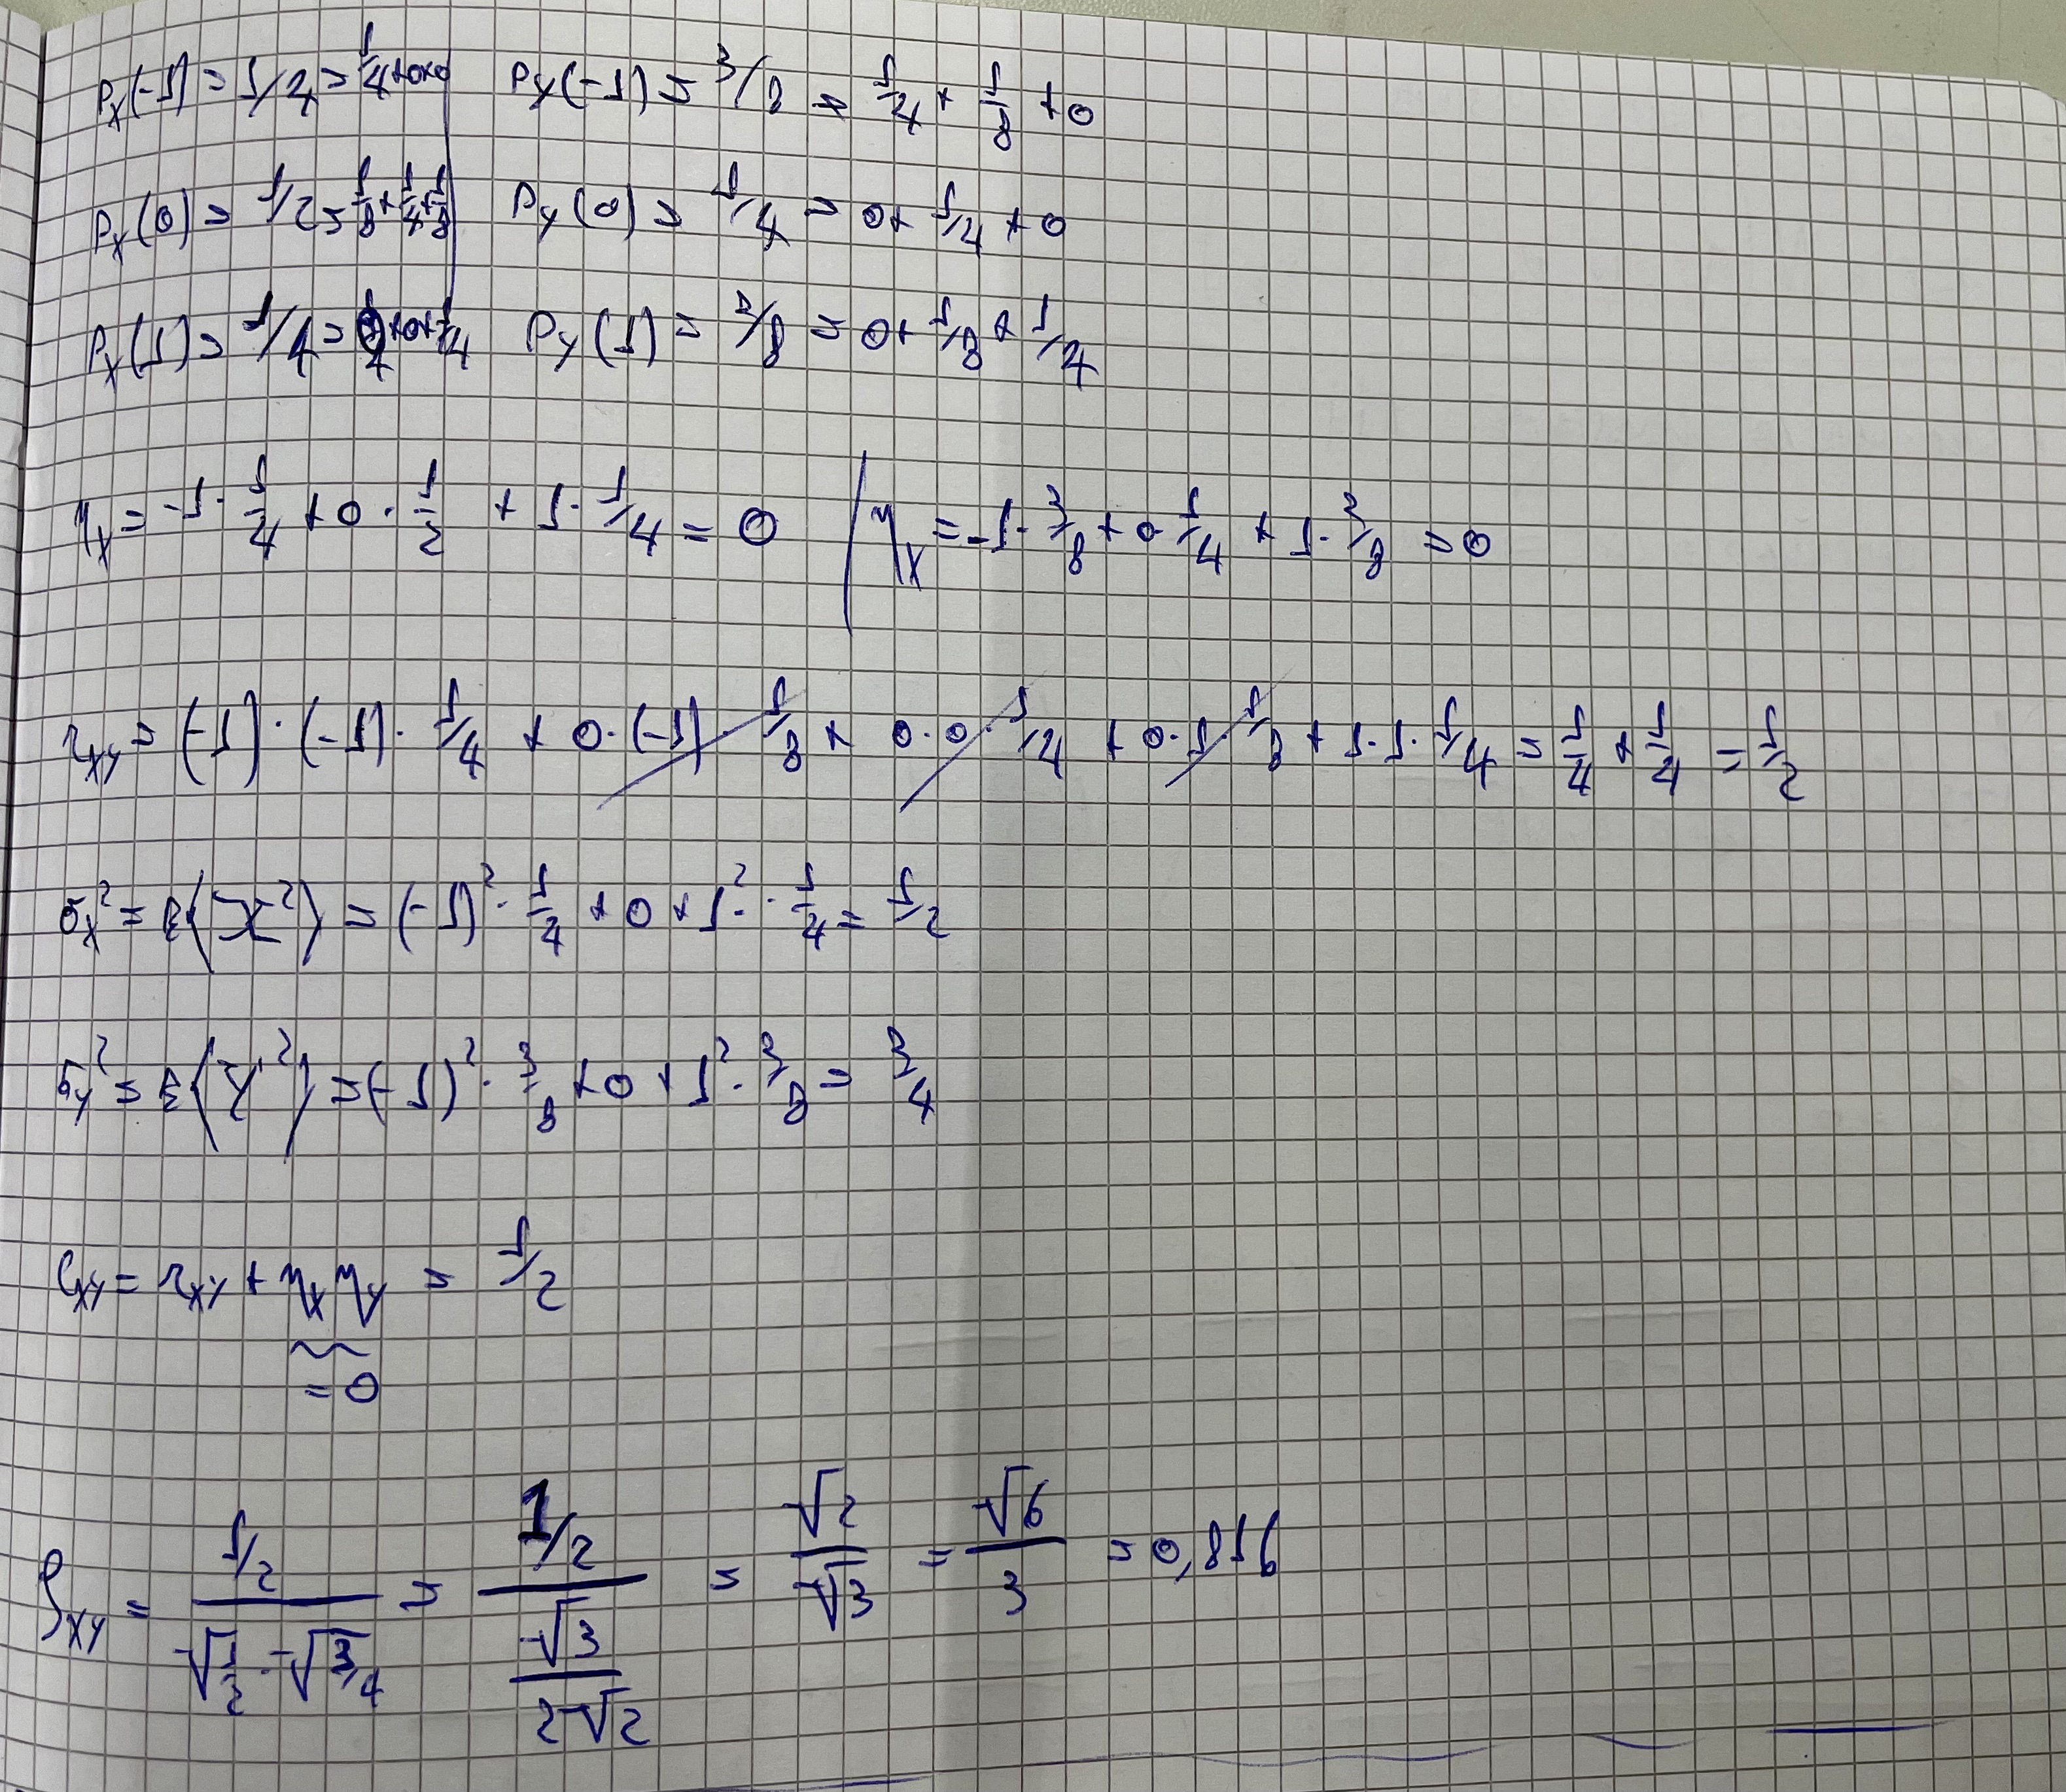 P_X(-1) = 1/4 = 1/4+0+0 | P_Y(-1) = 3/8 = 1/4 + 1/8 + 0
P_X(0) = 1/2 = 1/8+1/4+1/8 | P_Y(0) = 1/4 = 0+ 1/4 + 0
P_X(1) = 1/4 = 0+0+1/4 P_Y(1) = 3/8 = 0+ 1/8 + 1/4
η_X = -1·1/4 + 0·1/2 + 1·1/4 = 0 | η_X = -1·3/8 + 0·1/4 + 1·3/8 = 0
r_XY = (-1)·(-1)·1/4 + 0·(-1) 1/8 + 0·0·1/4 + 0·1 1/8 + 1·1·1/4 = 1/4 + 1/4 = 1/2
σ_X² = E(X²) = (-1)²·1/4 + 0 + 1²··1/4 = 1/2
σ_Y² = E(Y²) = (-1)²·3/8 + 0 + 1²·3/8 = 3/4
C_XY = r_XY + η_X η_Y = 1/2
= 0
ρ_XY = (1/2)/(√(1/2)·√(3/4)) = (1/2)/(√3/(2√2)) = √2/√3 = √6/3 = 0,816